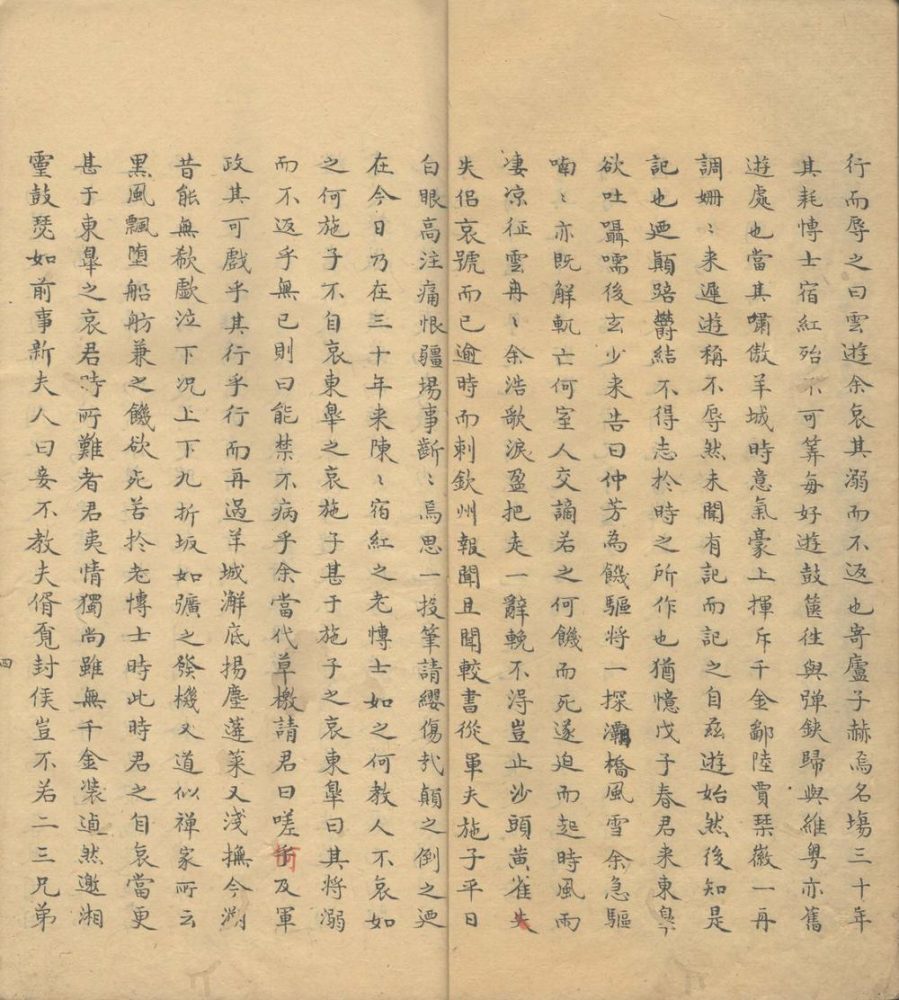 行而辱之曰雲遊余哀其溺而不返也寄廬子赫焉名塲三十年
其耗愽士宿紅殆不可筭每好遊鼓篋徃與弹鋏歸與維粤亦舊
遊處也當其嘯傲羊城時意氣豪上揮斥千金鄙陸賈琹徽一再
調姍〻来遲遊稱不辱然未聞有記而記之自兹遊始然後知是
記也廼顛踣欝結不得志扵時之所作也猶憶戊子春君来東臯
欲吐躡嚅後玄少来告曰仲芳為饑驅将一探灞橋風雪余急驅
喃〻亦既解軏亡何室人交謫若之何饑而死遂迫而起時風雨
凄凉征雲冉〻余浩歌淚盈把走一辭輓不淂豈止沙頭黄雀失
失侣哀號而已逾時而刺欽州報聞且聞較書從軍夫施子平日
白眼高注痛恨疆塲事齗〻焉思一投筆請纓傷㦲顛之倒之廼
在今日乃在三十年来陳〻宿紅之老愽士如之何教人不哀如
之何施子不自哀東臯之哀施子甚于施子之哀東臯曰其将溺
而不返乎無已則曰能禁不病乎余當代草檄請君曰嗟衝及軍
政其可戲乎其行乎行而再過羊城澥底揚塵蓬莱又淺撫今溯
昔能無欷歔泣下况上下九折坂如彍之發機又道似禅家所云
黒風飄堕船舫兼之饑欲死苦扵老愽士時此時君之自哀當更
甚于東臯之哀君時所難者君夷情獨尚雖無千金装逌然邀湘
靈鼓瑟如前事新夫人曰妾不教夫偦覔封侯豈不若二三兄弟
四